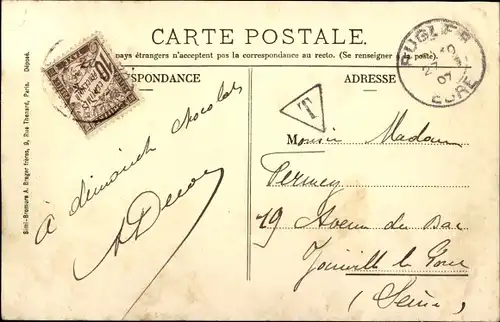 CARTE POSTALE.
pays étrangers n'acceptent pas la correspondance au recto. (Se renseigner la poste).
SPONDANCE
ADRESSE
Simi-Bromure A. Breger frères, 9, Rue Thenard, Paris. Déposé.
10
RUGLES
EURE
T
à dimanche chocolat
Monsieur Madame
19 Avenue du Bac
Joinville le Pont
(Seine)